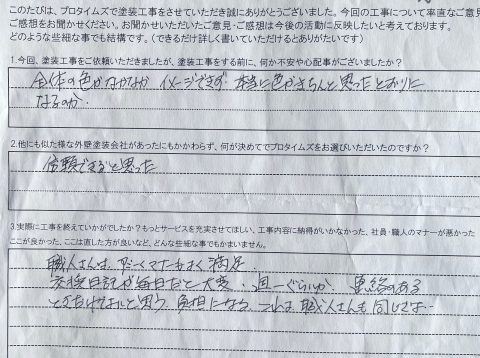 このたびは、プロタイムズで塗装工事をさせていただき誠にありがとうございました。今回の工事について率直なご意見
ご感想をお聞かせください。お聞かせいただいたご意見・ご感想は今後の活動に反映したいと考えております。
どのような些細な事でも結構です。（できるだけ詳しく書いていただけるとありがたいです）
1.今回、塗装工事をご依頼いただきましたが、塗装工事をする前に、何か不安や心配事がございましたか？
全体の色がなかなかイメージできず 本当に色がきちんと思ったとおりに
なるのか
2.他にも似た様な外壁塗装会社があったにもかかわらず、何が決めてでプロタイムズをお選びいただいたのですか？
信頼できると思った
3.実際に工事を終えていかがでしたか？もっとサービスを充実させてほしい、工事内容に納得がいかなかった、社員・職人のマナーが悪かった
ここが良かった、ここは直した方が良いなど、どんな些細な事でもかまいません。
職人さんは、マナーもよく満足
交換日記が毎日だと大変、週一ぐらいか、連絡のある
ときだけでよいと思う 負担になる これは職人さんも同じでは…